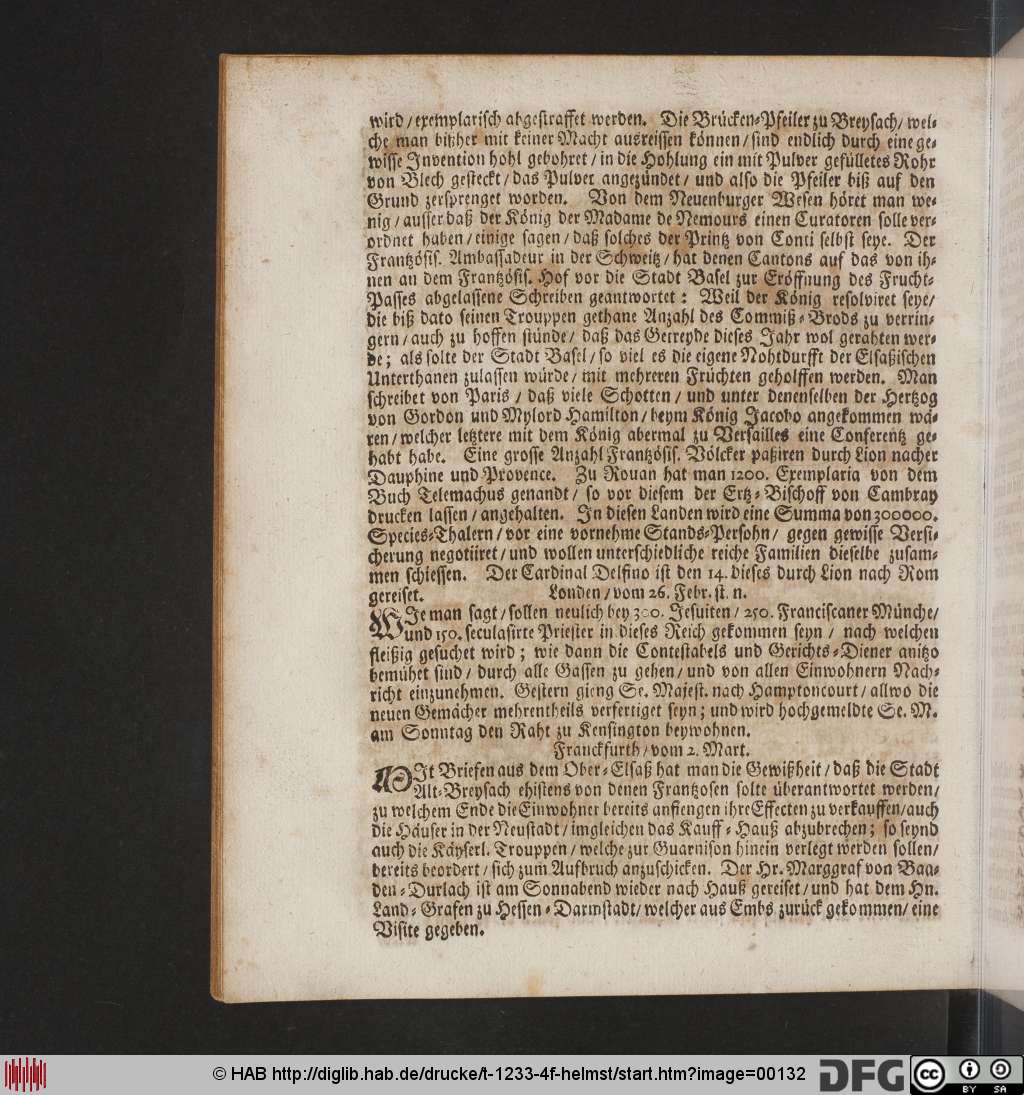 wird / exemplarisch abgestraffet werden. Die Brücken-Pfeiler zu Breysach / wel-
che man bißher mit keiner Macht ausreissen können / sind endlich durch eine ge-
wisse Invention hohl gebohret / in die Hohlung ein mit Pulver gefülletes Rohr
von Blech gesteckt / das Pulver angezündet / und also die Pfeiler biß auf den
Grund zersprenget worden. Von dem Neuenburger Wesen höret man we-
nig / ausser daß der König der Madame de Nemours einen Curatoren solle ver-
ordnet haben / einige sagen / daß solches der Printz von Conti selbst seye. Der
Frantzösis. Ambassadeur in der Schweitz / hat denen Cantons auf das von ih-
nen an dem Frantzösis. Hof vor die Stadt Basel zur Eröffnung des Frucht-
Passes abgelassene Schreiben geantwortet: Weil der König resolviret seye /
die biß dato seinen Trouppen gethane Anzahl des Commiß-Brods zu verrin-
gern / auch zu hoffen stünde / daß das Getreyde dieses Jahr wol gerahten wer-
de; als solte der Stadt Basel / so viel es die eigene Nohtdurfft der Elsaßischen
Unterthanen zulassen würde / mit mehreren Früchten geholffen werden. Man
schreibet von Paris / daß viele Schotten / und unter denenselben der Hertzog
von Gordon und Mylord Hamilton / beym König Jacobo angekommen wä-
ren / welcher letztere mit dem König abermal zu Versailles eine Conferentz ge-
habt habe. Eine grosse Anzahl Frantzösis. Völcker paßiren durch Lion nacher
Dauphine und Provence. Zu Rouan hat man 1200. Exemplaria von dem
Buch Telemachus genandt / so vor diesem der Ertz-Bischoff von Cambray
drucken lassen / angehalten. In diesen Landen wird eine Summa von 300000.
Species-Thalern / vor eine vornehme Stands-Persohn / gegen gewisse Versi-
cherung negotiiret / und wollen unterschiedliche reiche Familien dieselbe zusam-
men schiessen. Der Cardinal Delfino ist den 14. dieses durch Lion nach Rom
gereiset. Londen / vom 26. Febr. st. n.
WIe man sagt / sollen neulich bey 300. Jesuiten / 250. Franciscaner Münche /
und 150. seculasirte Priester in dieses Reich gekommen seyn / nach welchen
fleißig gesuchet wird; wie dann die Contestabels und Gerichts-Diener anitzo
bemühet sind / durch alle Gassen zu gehen / und von allen Einwohnern Nach-
richt einzunehmen. Gestern gieng Se. Majest. nach Hamptoncourt / allwo die
neuen Gemächer mehrentheils verfertiget seyn; und wird hochgemeldte Se. M.
am Sonntag den Raht zu Kensington beywohnen.
Franckfurth / vom 2. Mart.
MIt Briefen aus dem Ober-Elsaß hat man die Gewißheit / daß die Stadt
Alt-Breysach ehistens von denen Frantzosen solte überantwortet werden /
zu welchem Ende die Einwohner bereits anfiengen ihre Effecten zu verkauffen / auch
die Häuser in der Neustadt / imgleichen das Kauff-Hauß abzubrechen; so seynd
auch die Käyserl. Trouppen / welche zur Guarnison hinein verlegt werden sollen /
bereits beordert / sich zum Aufbruch anzuschicken. Der Hr. Marggraf von Baa-
den-Durlach ist am Sonnabend wieder nach Hauß gereiset / und hat dem Hn.
Land-Grafen zu Hessen-Darmstadt / welcher aus Embs zurück gekommen / eine
Visite gegeben.
© HAB http://diglib.hab.de/drucke/t-1233-4f-helmst/start.htm?image=00132
DFG
cc BY SA